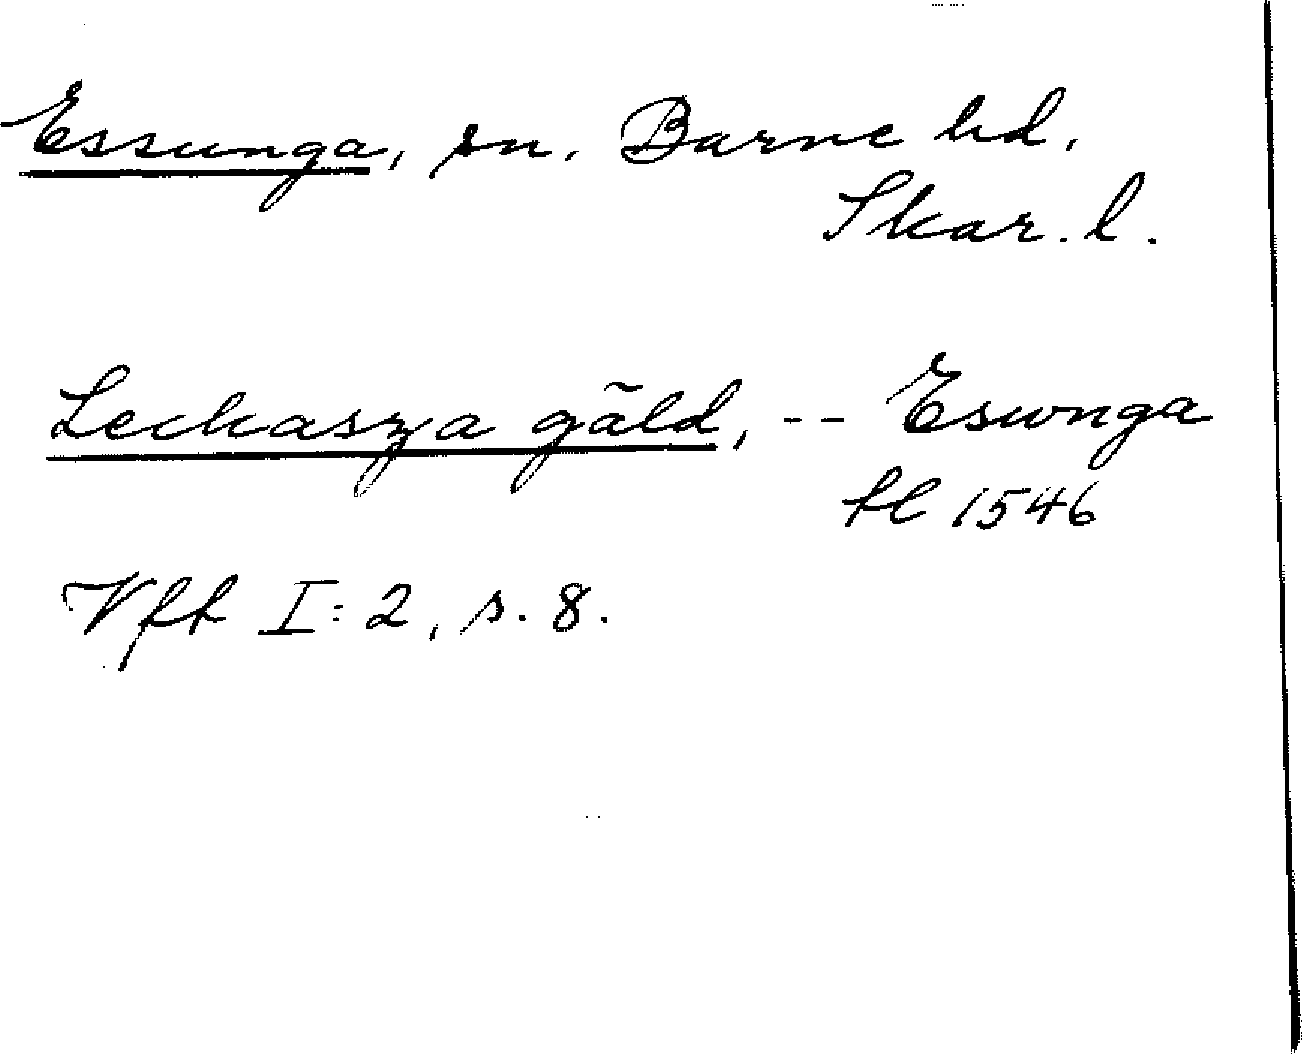 Essunga, sn. Barne hd.
Skar. l.
Leckasza gäld, -- Eswnga
fl 1546
Vff I:2, s. 8.